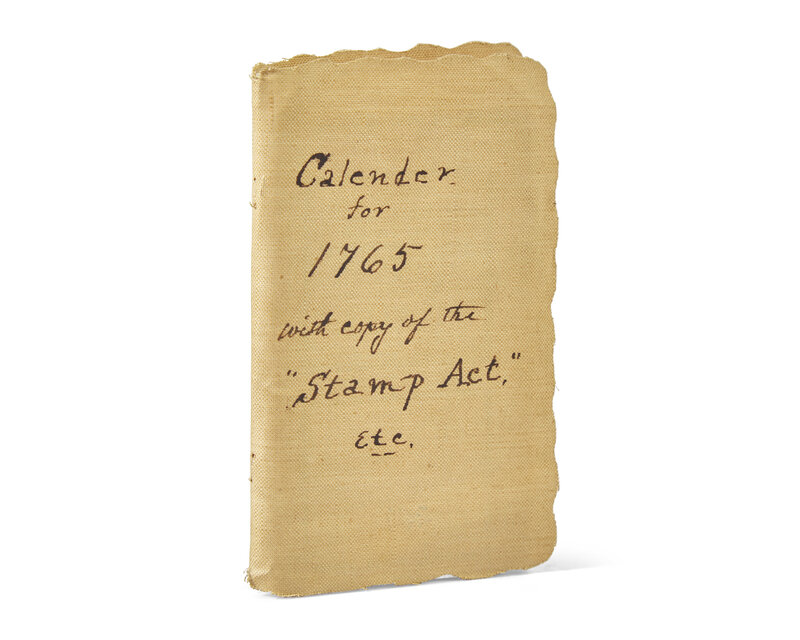 Calender
for
1765
with copy of the
"Stamp Act,"
Etc.